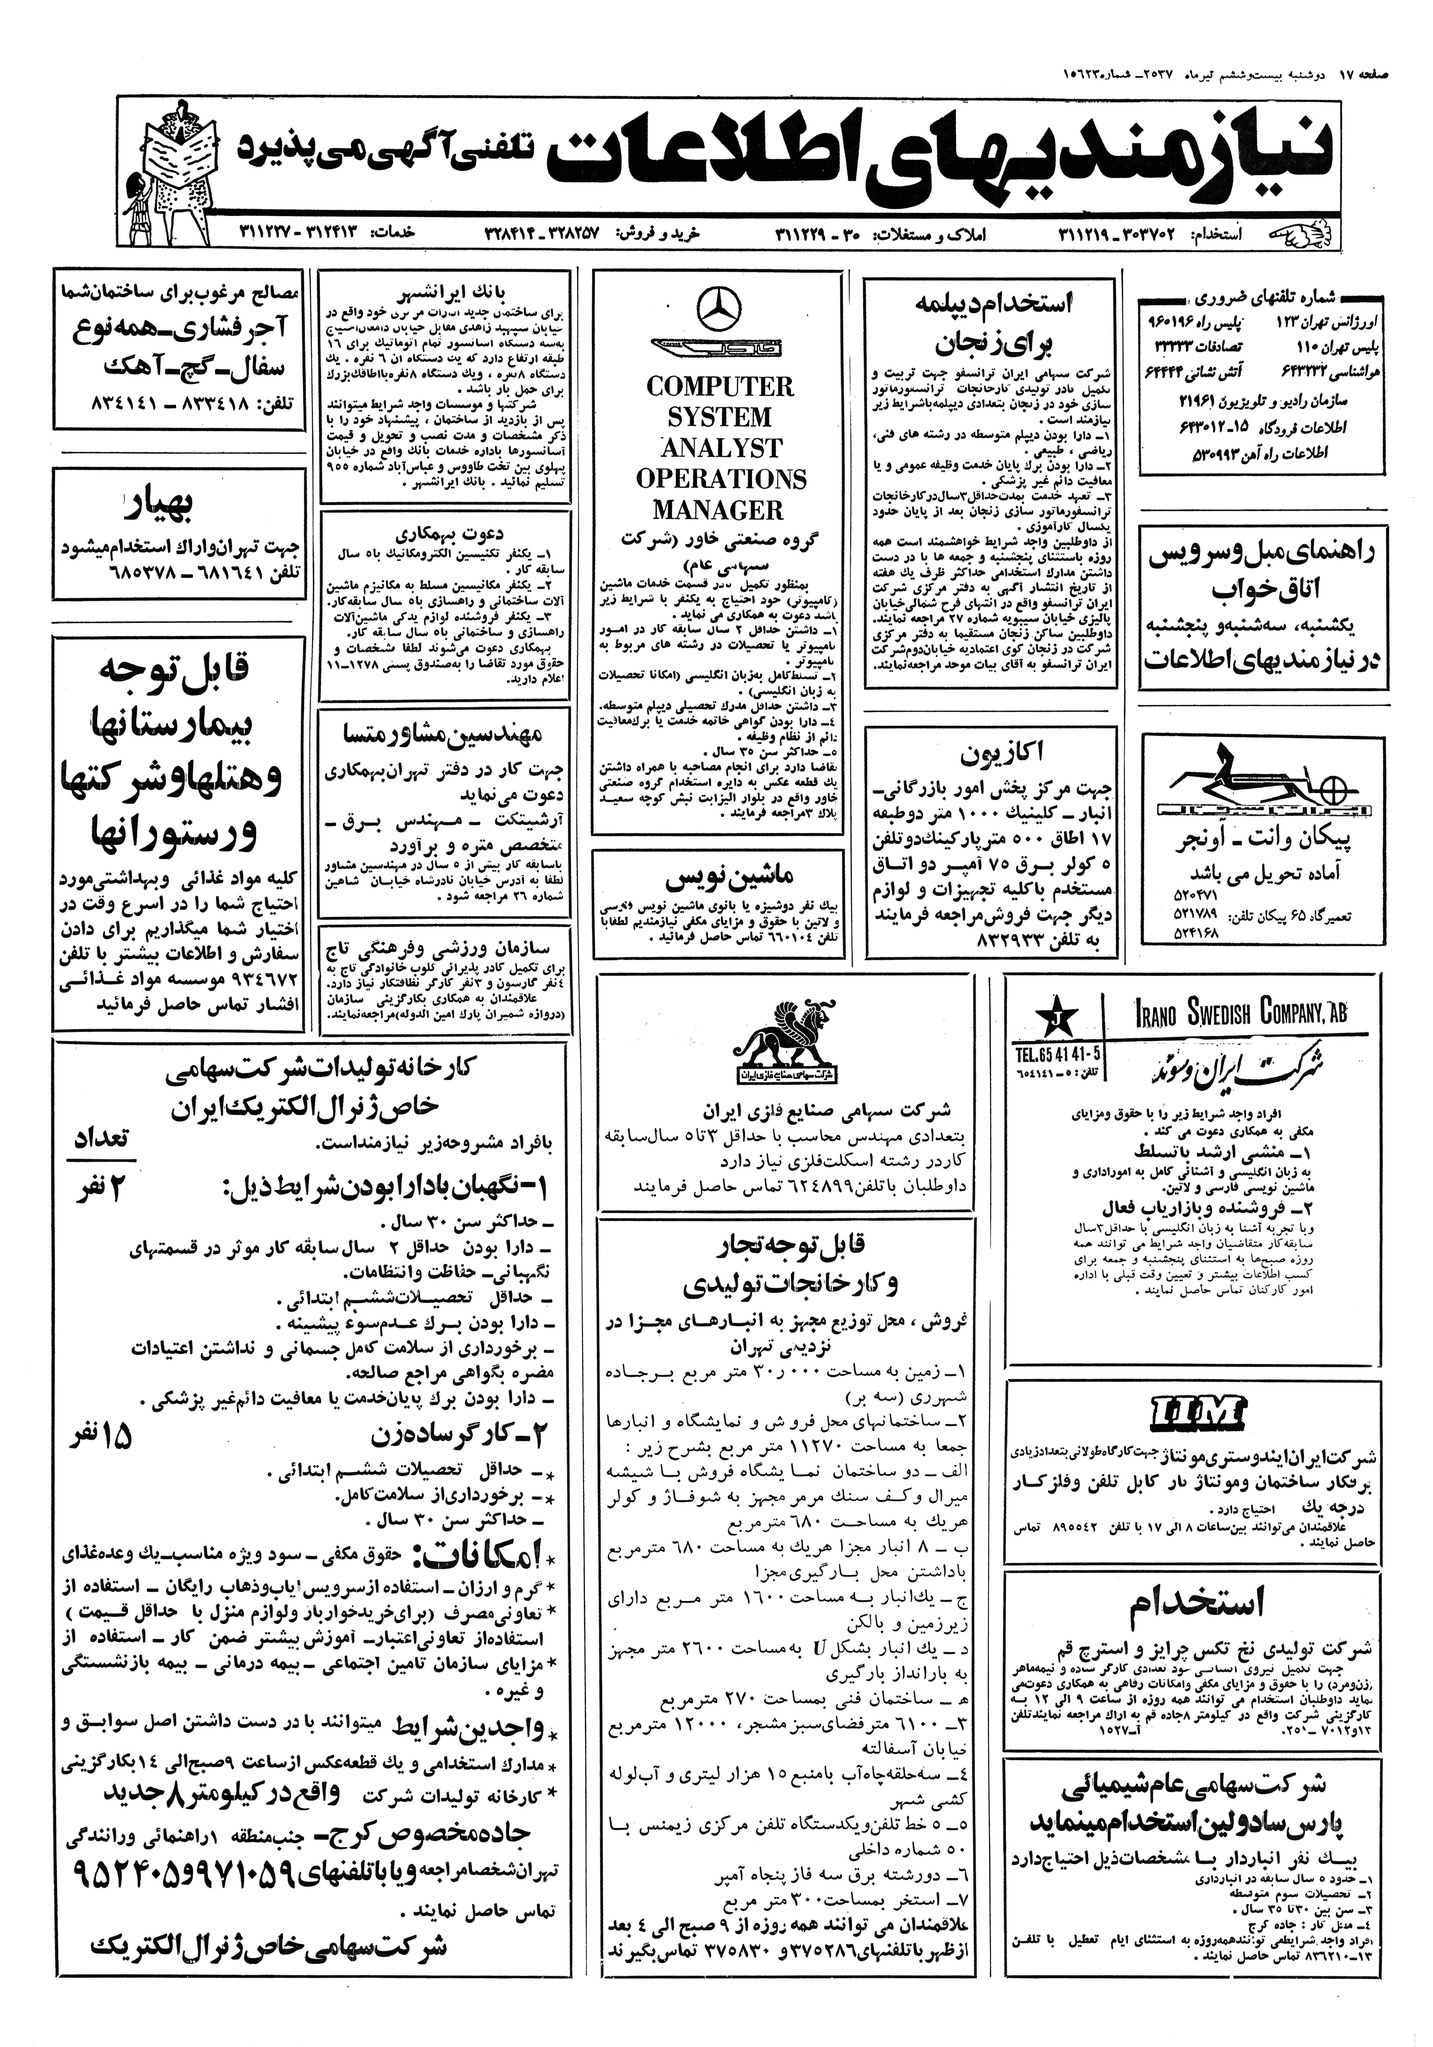 صفحه ۱۷ دوشنبه بیست‌وششم تیرماه ۲۵۳۷ـ شماره ۱۵۶۲۳
نیازمندیهای اطلاعات تلفنی آگهی می‌پذیرد
استخدام: ۳۰۳۷۰۲ - ۳۱۱۲۱۹ املاک و مستغلات: ۳۰ - ۳۱۱۲۲۹ خرید و فروش: ۳۲۸۲۵۷ - ۳۲۸۴۱۴ خدمات: ۳۱۲۴۱۳ - ۳۱۱۲۳۷
شماره تلفنهای ضروری
اورژانس تهران ۱۲۳ پلیس راه ۹۶۰۱۹۶
پلیس تهران ۱۱۰ تصادفات ۳۳۳۳۳
هواشناسی ۶۴۳۲۳۲ آتش نشانی ۶۴۴۴۴
سازمان رادیو و تلویزیون ۲۱۹۶۱
اطلاعات فرودگاه ۱۵ـ۶۴۳۰۱۲
اطلاعات راه آهن ۵۳۰۹۹۳
راهنمای مبل وسرویس
اتاق خواب
یکشنبه، سه‌شنبه‌و پنجشنبه
در نیازمندیهای اطلاعات
پیکان وانت ـ آونجر
آماده تحویل می باشد
۵۲۰۴۷۱
تعمیرگاه ۶۵ پیکان تلفن: ۵۲۱۷۸۹
۵۲۴۱۶۸
استخدام دیپلمه
برای زنجان
شرکت سهامی ایران ترانسفو جهت تربیت و
تکمیل کادر تولیدی کارخانجات ترانسفورماتور
سازی خود در زنجان بتعدادی دیپلمه باشرایط زیر
نیازمند است .
۱ـ دارا بودن دیپلم متوسطه در رشته های فنی،
ریاضی ، طبیعی .
۲ـ دارا بودن برك پایان خدمت وظیفه عمومی و یا
معافیت دائم غیر پزشکی .
۳ـ تعهد خدمت بمدت‌حداقل ۳سال‌درکارخانجات
ترانسفورماتور سازی زنجان بعد از پایان حدود
یکسال کارآموزی .
از داوطلبین واجد شرایط خواهشمند است همه
روزه باستثنای پنجشنبه و جمعه ها با در دست
داشتن مدارك استخدامی حداکثر ظرف یك هفته
از تاریخ انتشار آگهی به دفتر مرکزی شرکت
ایران ترانسفو واقع در انتهای فرح شمالی‌خیابان
پالیزی خیابان سیبویه شماره ۲۷ مراجعه نمایند.
داوطلبین ساکن زنجان مستقیما به دفتر مرکزی
شرکت در زنجان کوی اعتمادیه خیابان‌دوم‌شرکت
ایران ترانسفو به آقای بیات موحد مراجعه‌نمایند.
اکازیون
جهت مرکز پخش امور بازرگانی ـ
انبار ـ کلینیك ۱۰۰۰ متر دوطبقه
۱۷ اطاق ۵۰۰ متر پارکینگ دو تلفن
۵ کولر برق ۷۵ آمپر دو اتاق
مستخدم باکلیه تجهیزات و لوازم
دیگر جهت فروش مراجعه فرمایند
به تلفن ۸۳۲۹۳۳
COMPUTER
SYSTEM
ANALYST
OPERATIONS
MANAGER
گروه صنعتی خاور (شرکت
سهامی عام)
بمنظور تکمیل کادر قسمت خدمات ماشین
(کامپیوتر) خود احتیاج به یکنفر با شرایط زیر
باشد دعوت به همکاری می نماید.
۱ـ داشتن حداقل ۲ سال سابقه کار در امور
کامپیوتر یا تحصیلات در رشته های مربوط به
کامپیوتر .
۲ـ تسلط‌کامل به‌زبان انگلیسی (امکانا تحصیلات
به زبان انگلیسی) .
۳ـ داشتن حداقل مدرك تحصیلی دیپلم متوسطه.
۴ـ دارا بودن گواهی خاتمه خدمت یا برك‌معافیت
دائم از نظام وظیفه .
۵ـ حداکثر سن ۳۵ سال .
تقاضا دارد برای انجام مصاحبه با همراه داشتن
یك قطعه عکس به دایره استخدام گروه صنعتی
خاور واقع در بلوار الیزابت نبش کوچه سعید
پلاك ۳ مراجعه فرمایند .
ماشین نویس
بیك نفر دوشیزه یا بانوی ماشین نویس فارسی
و لاتین با حقوق و مزایای مکفی نیازمندیم لطفابا
تلفن ۶۶۰۱۰۴ تماس حاصل فرمائید .
بانك ایرانشهر
برای ساختمان جدید ادارات مرکزی خود واقع در
خیابان سپهبد زاهدی مقابل خیابان دامغان‌احتیاج
به‌سه دستگاه آسانسور تمام اتوماتیك برای ۱۶
طبقه ارتفاع دارد که یك دستگاه آن ۶ نفره ، یك
دستگاه ۸نفره ، ویك دستگاه ۸نفره‌بااطاقك‌بزرگ
برای حمل بار باشد .
شرکتها و موسسات واجد شرایط میتوانند
پس از بازدید از ساختمان ، پیشنهاد خود را با
ذکر مشخصات و مدت نصب و تحویل و قیمت
آسانسورها باداره خدمات بانك واقع در خیابان
پهلوی بین تخت طاووس و عباس‌آباد شماره ۹۵۵
تسلیم نمائید . بانك ایرانشهر .
دعوت بهمکاری
۱ـ یکنفر تکنیسین الکترومکانیك با۵ سال
سابقه کار .
۲ـ یکنفر مکانیسین مسلط به مکانیزم ماشین
آلات ساختمانی و راهسازی با۵ سال سابقه‌کار.
۳ـ یکنفر فروشنده لوازم یدکی ماشین‌آلات
راهسازی و ساختمانی با۵ سال سابقه کار.
بهمکاری دعوت می‌شوند لطفا مشخصات و
حقوق مورد تقاضا را به‌صندوق پستی ۱۲۷۸ـ۱۱
اعلام دارید.
مهندسین مشاور متسا
جهت کار در دفتر تهران بهمکاری
دعوت می‌نماید
آرشیتکت ـ مهندس برق ـ
متخصص متره و برآورد
باسابقه کار بیش از ۵ سال در مهندسین مشاور
لطفا به آدرس خیابان نادرشاه خیابان شاهین
شماره ۳۶ مراجعه شود .
سازمان ورزشی وفرهنگی تاج
برای تکمیل کادر پذیرائی کلوپ خانوادگی تاج به
۴نفر گارسون و ۳نفر کارگر نظافتکار نیاز دارد.
علاقمندان به همکاری بکارگزینی سازمان
(دروازه شمیران پارك امین الدوله)مراجعه‌نمایند.
مصالح مرغوب برای ساختمان شما
آجر فشاری ـ همه نوع
سفال ـ گچ ـ آهك
تلفن: ۸۳۳۴۱۸ - ۸۳۴۱۴۱
بهیار
جهت تهران‌واراك استخدام میشود
تلفن ۶۸۱۶۴۱ - ۶۸۵۳۷۸
قابل توجه
بیمارستانها
وهتلهاوشرکتها
ورستورانها
کلیه مواد غذائی وبهداشتی‌مورد
احتیاج شما را در اسرع وقت در
اختیار شما میگذاریم برای دادن
سفارش و اطلاعات بیشتر با تلفن
۹۳۴۶۷۲ موسسه مواد غذائی
افشار تماس حاصل فرمائید
IRANO SWEDISH COMPANY, AB
شرکت ایران و سوئد
TEL.65 41 41-5
تلفن : ۵ـ ۶۵۴۱۴۱
افراد واجد شرایط زیر را با حقوق ومزایای
مکفی به همکاری دعوت می کند .
۱ـ منشی ارشد باتسلط
به زبان انگلیسی و آشنائی کامل به اموراداری و
ماشین نویسی فارسی و لاتین.
۲ـ فروشنده وبازاریاب فعال
وبا تجربه آشنا به زبان انگلیسی با حداقل ۳سال
سابقه‌کار متقاضیان واجد شرایط می توانند همه
روزه صبح‌ها به استثنای پنجشنبه و جمعه برای
کسب اطلاعات بیشتر و تعیین وقت قبلی با اداره
امور کارکنان تماس حاصل نمایند .
IIM
شرکت‌ایران‌ایندوستری‌مونتاژ جهت‌کارگاه‌طولانی‌بتعدادزیادی
برقکار ساختمان ومونتاژ کار کابل تلفن وفلزکار
درجه یك احتیاج دارد .
علاقمندان می‌توانند بین‌ساعات ۸ الی ۱۷ با تلفن ۸۹۵۵۴۲ تماس
حاصل نمایند .
استخدام
شرکت تولیدی نخ تکس چرایز و استرچ قم
جهت تکمیل نیروی انسانی خود تعدادی کارگر ساده و نیمه‌ماهر
(زن‌ومرد) را با حقوق و مزایای مکفی وامکانات رفاهی به همکاری دعوت‌می
نماید داوطلبان استخدام می توانند همه روزه از ساعت ۹ الی ۱۲ به
کارگزینی شرکت واقع در کیلومتر ۸جاده قم به اراك مراجعه نمایندتلفن
۱۳و۷۰۱۲ - ۲۵۱. آ-۱۵۲۷
شرکت سهامی عام شیمیائی
پارس سادولین استخدام مینماید
بیك نفر انباردار با مشخصات ذیل احتیاج دارد
۱ـ حدود ۵ سال سابقه در انبارداری
۲ـ تحصیلات سوم متوسطه
۳ـ سن بین ۳۰ تا ۳۵ سال .
۴ـ محل کار : جاده کرج
افراد واجد شرایط‌می توانندهمه‌روزه به استثنای ایام تعطیل با تلفن
۱۳ـ۸۳۶۲۱۰ تماس حاصل نمایند .
شرکت سهامی صنایع فلزی ایران
شرکت سهامی صنایع فلزی ایران
بتعدادی مهندس محاسب با حداقل ۳تا۵ سال‌سابقه
کاردر رشته اسکلت‌فلزی نیاز دارد
داوطلبان با تلفن ۶۲۴۸۹۹ تماس حاصل فرمایند
قابل توجه تجار
وکارخانجات تولیدی
فروش ، محل توزیع مجهز به انبارهای مجزا در
نزدیکی تهران
۱ـ زمین به مساحت ۳۰٫۰۰۰ متر مربع برجاده
شهرری (سه بر)
۲ـ ساختمانهای محل فروش و نمایشگاه و انبارها
جمعا به مساحت ۱۱۲۷۰ متر مربع بشرح زیر :
الف ـ دو ساختمان نمایشگاه فروش با شیشه
میرال وکف سنك مرمر مجهز به شوفاژ و کولر
هریك به مساحت ۶۸۰ مترمربع
ب ـ ۸ انبار مجزا هریك به مساحت ۶۸۰ مترمربع
باداشتن محل بارگیری مجزا
ج ـ یك‌انبار به مساحت ۱۶۰۰ متر مربع دارای
زیرزمین و بالکن
د ـ یك انبار بشکل U به‌مساحت ۲۶۰۰ متر مجهز
به بارانداز بارگیری
ه ـ ساختمان فنی بمساحت ۲۷۰ مترمربع
۳ـ ۶۱۰۰ مترفضای‌سبز مشجر، ۱۲۰۰۰ مترمربع
خیابان آسفالته
۴ـ سه‌حلقه‌چاه‌آب بامنبع ۱۵ هزار لیتری و آب‌لوله
کشی شهر
۵ـ ۵ خط تلفن‌ویکدستگاه تلفن مرکزی زیمنس با
۵۰ شماره داخلی
۶ـ دورشته برق سه فاز پنجاه آمپر
۷ـ استخر بمساحت ۳۰۰ متر مربع
علاقمندان می توانند همه روزه از ۹ صبح الی ۴ بعد
از ظهر با تلفنهای ۳۷۵۲۸۶ و ۳۷۵۸۳۰ تماس بگیرند
کارخانه تولیدات شرکت سهامی
خاص ژنرال الکتریك ایران
بافراد مشروحه‌زیر نیازمنداست. تعداد
۱-نگهبان بادارا بودن شرایط ذیل: ۲ نفر
ـ حداکثر سن ۳۰ سال .
ـ دارا بودن حداقل ۲ سال سابقه کار موثر در قسمتهای
نگهبانی ـ حفاظت وانتظامات.
ـ حداقل تحصیلات‌ششم ابتدائی .
ـ دارا بودن برك عدم‌سوء پیشینه .
ـ برخورداری از سلامت کامل جسمانی و نداشتن اعتیادات
مضره بگواهی مراجع صالحه.
ـ دارا بودن برك پایان‌خدمت یا معافیت دائم‌غیر پزشکی .
۲ـ کارگر ساده زن ۱۵ نفر
*ـ حداقل تحصیلات ششم ابتدائی .
*ـ برخورداری‌از سلامت‌کامل.
ـ حداکثر سن ۳۰ سال .
* امکانات: حقوق مکفی ـ سود ویژه مناسب‌ـ‌یك وعده‌غذای
* گرم و ارزان ـ استفاده ازسرویس ایاب‌وذهاب رایگان ـ استفاده از
* تعاونی مصرف (برای‌خرید‌خواربار ولوازم منزل با حداقل قیمت)
استفاده‌از تعاونی‌اعتبار ـ آموزش بیشتر ضمن کار ـ استفاده از
* مزایای سازمان تامین اجتماعی ـ بیمه درمانی ـ بیمه بازنشستگی
و غیره .
* واجدین شرایط میتوانند با در دست داشتن اصل سوابق و
* مدارك استخدامی و یك قطعه‌عکس ازساعت ۹صبح‌الی ۱۴بکارگزینی
* کارخانه تولیدات شرکت واقع در کیلومتر ۸ جدید
جاده مخصوص کرج ـ جنب‌منطقه ۱راهنمائی ورانندگی
تهران‌شخصامراجعه ویا با تلفنهای ۹۷۱۰۵۹و۹۵۲۴۰۵
تماس حاصل نمایند .
شرکت سهامی خاص ژنرال الکتریك